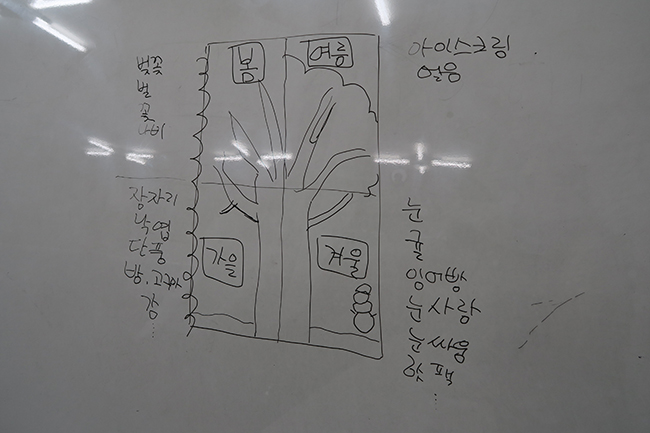 봄
여름
벚꽃
벌
꽃
나비
아이스크림
얼음
가을
겨울
잠자리
낙엽
단풍
밤, 고구마
감
눈
귤
잉어빵
눈사람
눈싸움
핫팩